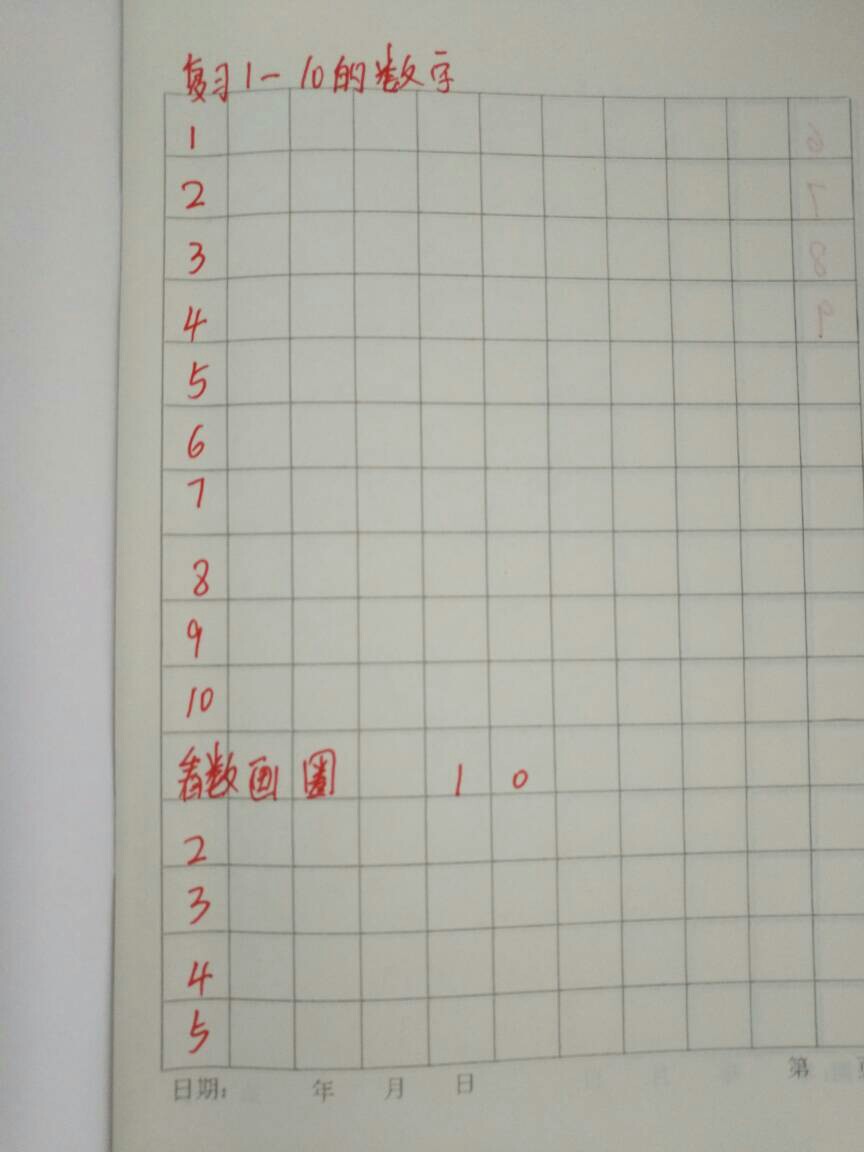 复习1-10的数字
1
2
3
4
5
6
7
8
9
10
看数画圈 1 0
2
3
4
5
日期: 年 月 日 第